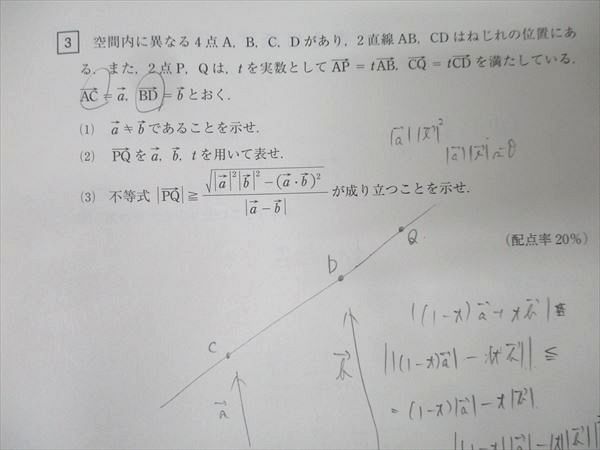 3 空間内に異なる4点A, B, C, Dがあり, 2直線AB, CDはねじれの位置にあ
る. また, 2点P, Qは, tを実数として$\overrightarrow{AP}=t\overrightarrow{AB}$, $\overrightarrow{CQ}=t\overrightarrow{CD}$を満たしている.
$\overrightarrow{AC}=\vec{a}$, $\overrightarrow{BD}=\vec{b}$とおく.
(1) $\vec{a}\neq\vec{b}$であることを示せ.
(2) $\overrightarrow{PQ}$を$\vec{a}$, $\vec{b}$, tを用いて表せ.
(3) 不等式 $|\overrightarrow{PQ}|\geqq\frac{\sqrt{|\vec{a}|^2|\vec{b}|^2-(\vec{a}\cdot\vec{b})^2}}{|\vec{a}-\vec{b}|}$ が成り立つことを示せ.
(配点率20%)
Q
D
C
$\vec{a}$
$\vec{b}$